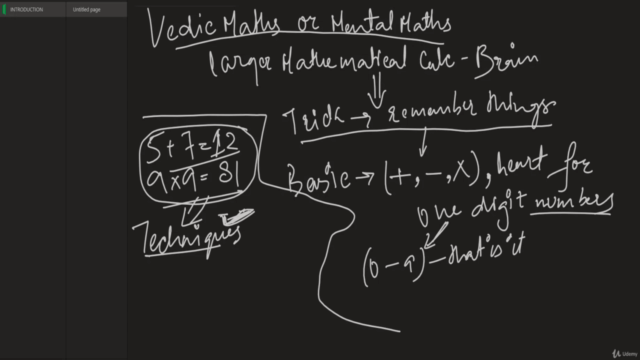 INTRODUCTION
Untitled page
Vedic Maths or Mental Maths
larger Mathematical Calc - Brain
Trick → remember things
Basic → (+, -, x), heart for
one digit numbers
(0 - 9) - that is it
5 + 7 = 12
9 x 9 = 81
Techniques
Udemy